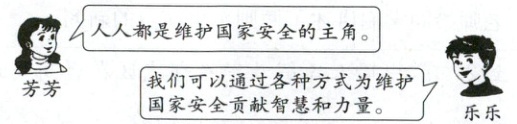 人人都是维护国家安全的主角。
芳芳
我们可以通过各种方式为维护
国家安全贡献智慧和力量。
乐乐